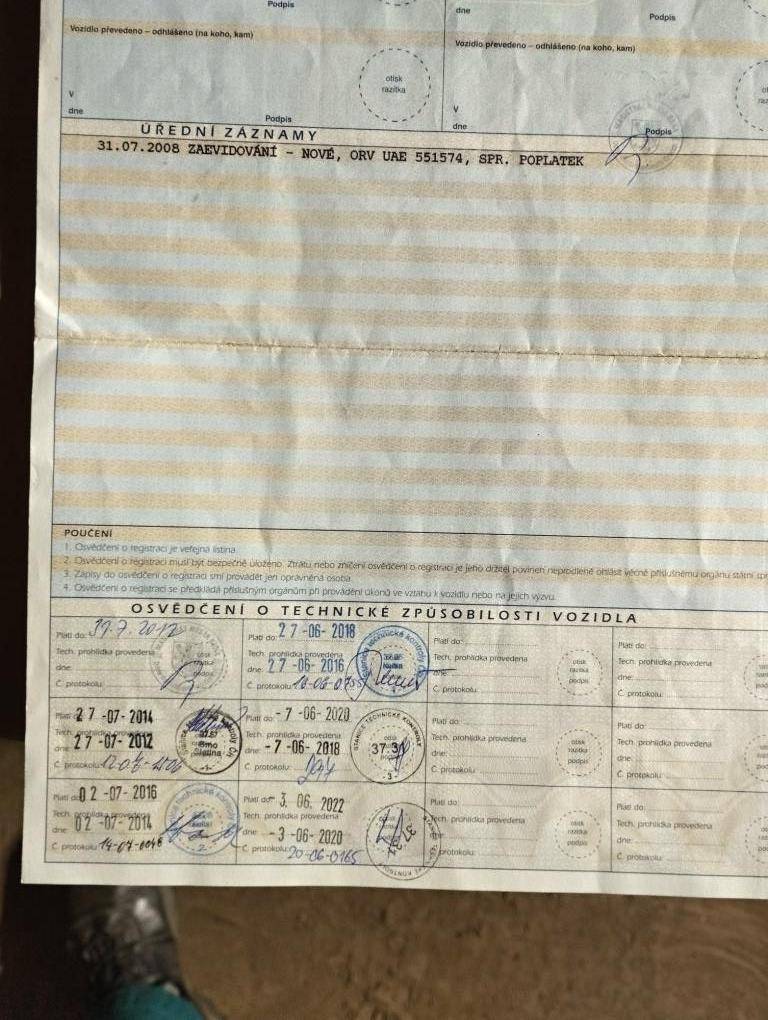 Podpis
dne
Podpis
Vozidlo převedeno – odhlášeno (na koho, kam)
Vozidlo převedeno – odhlášeno (na koho, kam)
otisk
razítka
V
dne
Podpis
V
dne
Podpis
ÚŘEDNÍ ZÁZNAMY
31.07.2008 ZAEVIDOVÁNÍ - NOVÉ, ORV UAE 551574, SPR. POPLATEK
POUČENÍ
1. Osvědčení o registraci je veřejná listina.
2. Osvědčení o registraci musí být bezpečně uloženo. Ztrátu nebo zničení osvědčení o registraci je jeho držitel povinen neprodleně ohlásit věcně příslušnému orgánu státní
3. Zápisy do osvědčení o registraci smí provádět jen oprávněná osoba.
4. Osvědčení o registraci se předkládá příslušným orgánům při provádění úkonů ve vztahu k vozidlu nebo na jejich výzvu.
OSVĚDČENÍ O TECHNICKÉ ZPŮSOBILOSTI VOZIDLA
Platí do:
Tech. prohlídka provedena
dne:
Č. protokolu:
Platí do: 27-06-2018
Tech. prohlídka provedena
dne: 27-06-2016
Č. protokolu:
Platí do:
Tech. prohlídka provedena
dne:
Č. protokolu:
otisk
razítka
podpis
Platí do:
Tech. prohlídka provedena
dne:
Č. protokolu:
Platí do: 27-07-2014
Tech. prohlídka provedena
dne: 27-07-2012
Č. protokolu:
Brno
Platí do: -7-06-2020
Tech. prohlídka provedena
dne: -7-06-2018
Č. protokolu:
STANICE TECHNICKÉ KONTROLY
37.31
- 3 -
Platí do:
Tech. prohlídka provedena
dne:
Č. protokolu:
otisk
razítka
podpis
Platí do:
Tech. prohlídka provedena
dne:
Č. protokolu:
Platí do: 02-07-2016
Tech. prohlídka provedena
dne: 02-07-2014
Č. protokolu: 14-07-0048
- 2 -
Platí do: -3. 06. 2022
Tech. prohlídka provedena
dne: -3-06-2020
Č. protokolu: 20-06-0165
Platí do:
Tech. prohlídka provedena
dne:
Č. protokolu:
otisk
razítka
podpis
Platí do:
Tech. prohlídka provedena
dne:
Č. protokolu: